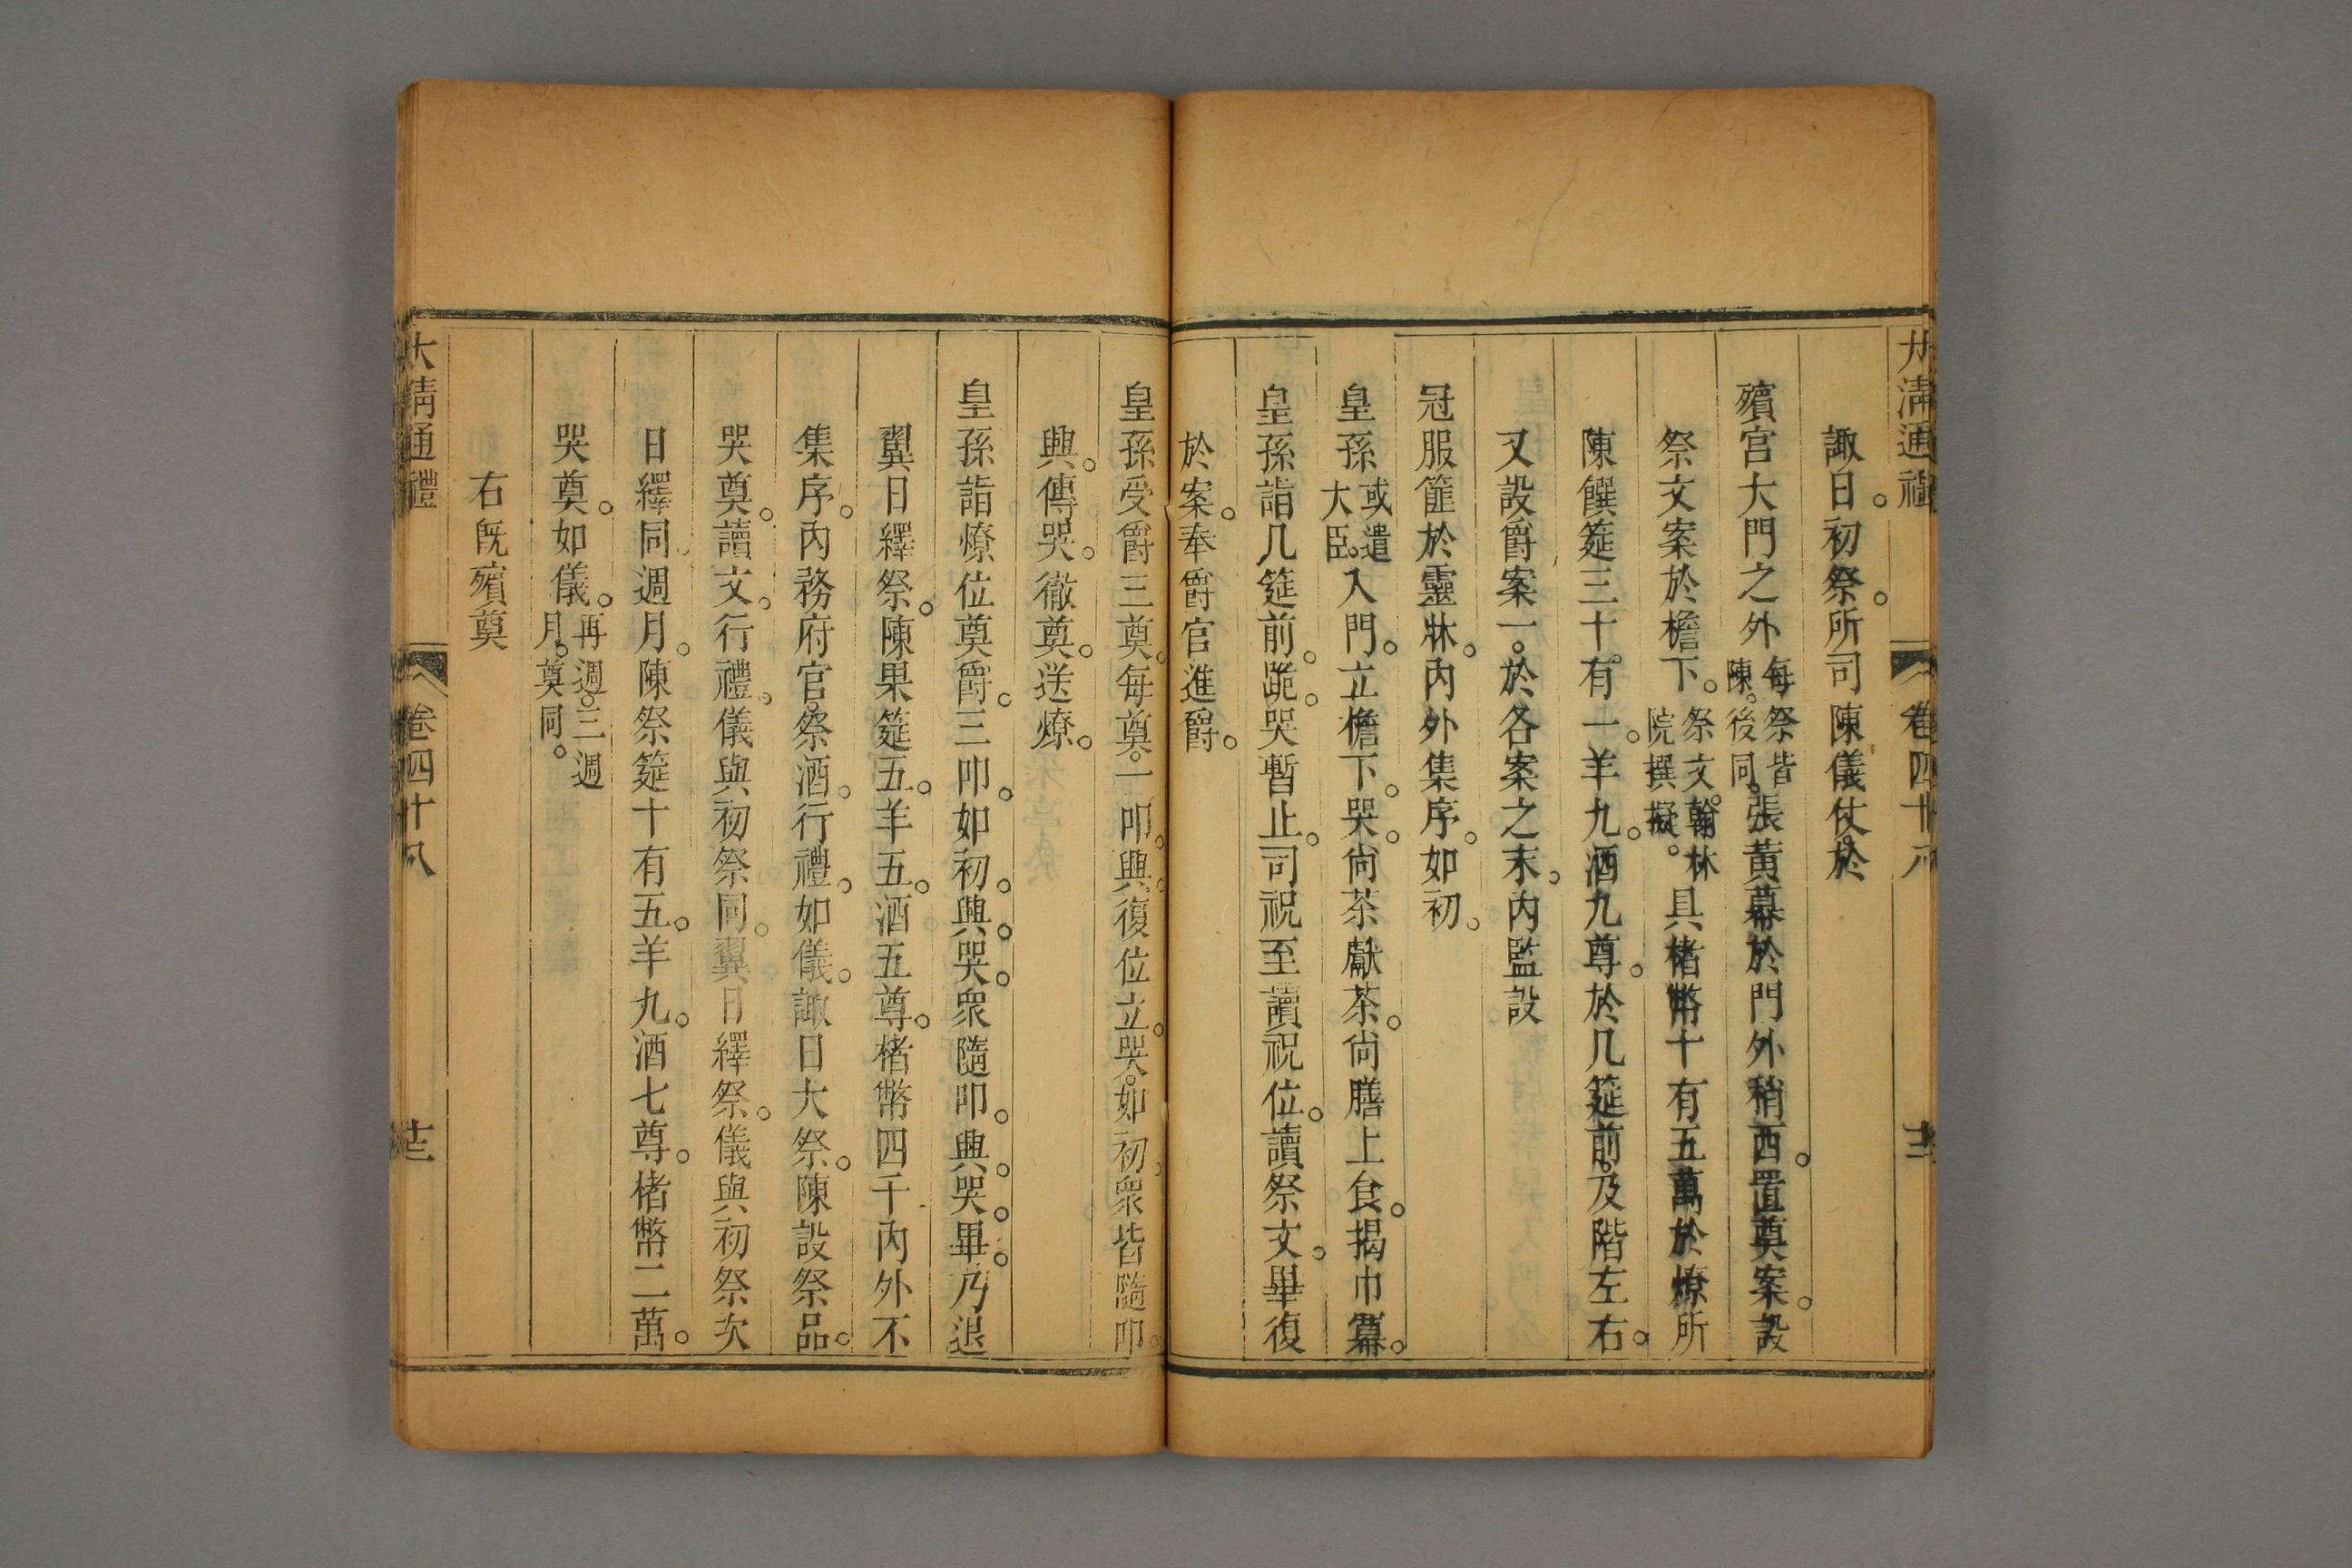 大淸通禮 卷四十八 十二
諏日。初祭。所司陳儀仗。於
殯宮大門之外每祭皆陳。後同。張黃幕於門外稍西。置奠案。設
祭文案於檐下。祭文。翰林院撰擬。具楮幣十有五萬於燎所
陳饌筵三十有一。羊九。酒九尊。於几筵前。及階左右。
又設爵案一。於各案之末。內監設
冠服篚於靈牀。內外集序。如初。
皇孫或遣大臣。入門。立檐下。哭。尙茶獻茶。尙膳上食。揭巾冪。
皇孫詣几筵前。跪。哭暫止。司祝至讀祝位。讀祭文。畢復
於案。奉爵官進爵。
皇孫受爵三奠。每奠。一叩。興。復位立。哭。如初。衆皆隨叩。
興。傳哭。徹奠。送燎。
皇孫詣燎位奠爵。三叩。如初。興。哭。衆隨叩。興。哭。畢。乃退
翼日繹祭。陳果筵五。羊五。酒五尊。楮幣四千內外不
集序。內務府官。祭酒。行禮。如儀。諏日大祭。陳設祭品。
哭奠。讀文。行禮。儀與初祭同。翼日繹祭。儀與初祭次
日繹同。週月。陳祭筵十有五。羊九。酒七尊。楮幣二萬。
哭奠。如儀。再週。三週月。奠同。
右旣殯奠
大淸通禮 卷四十八 十三